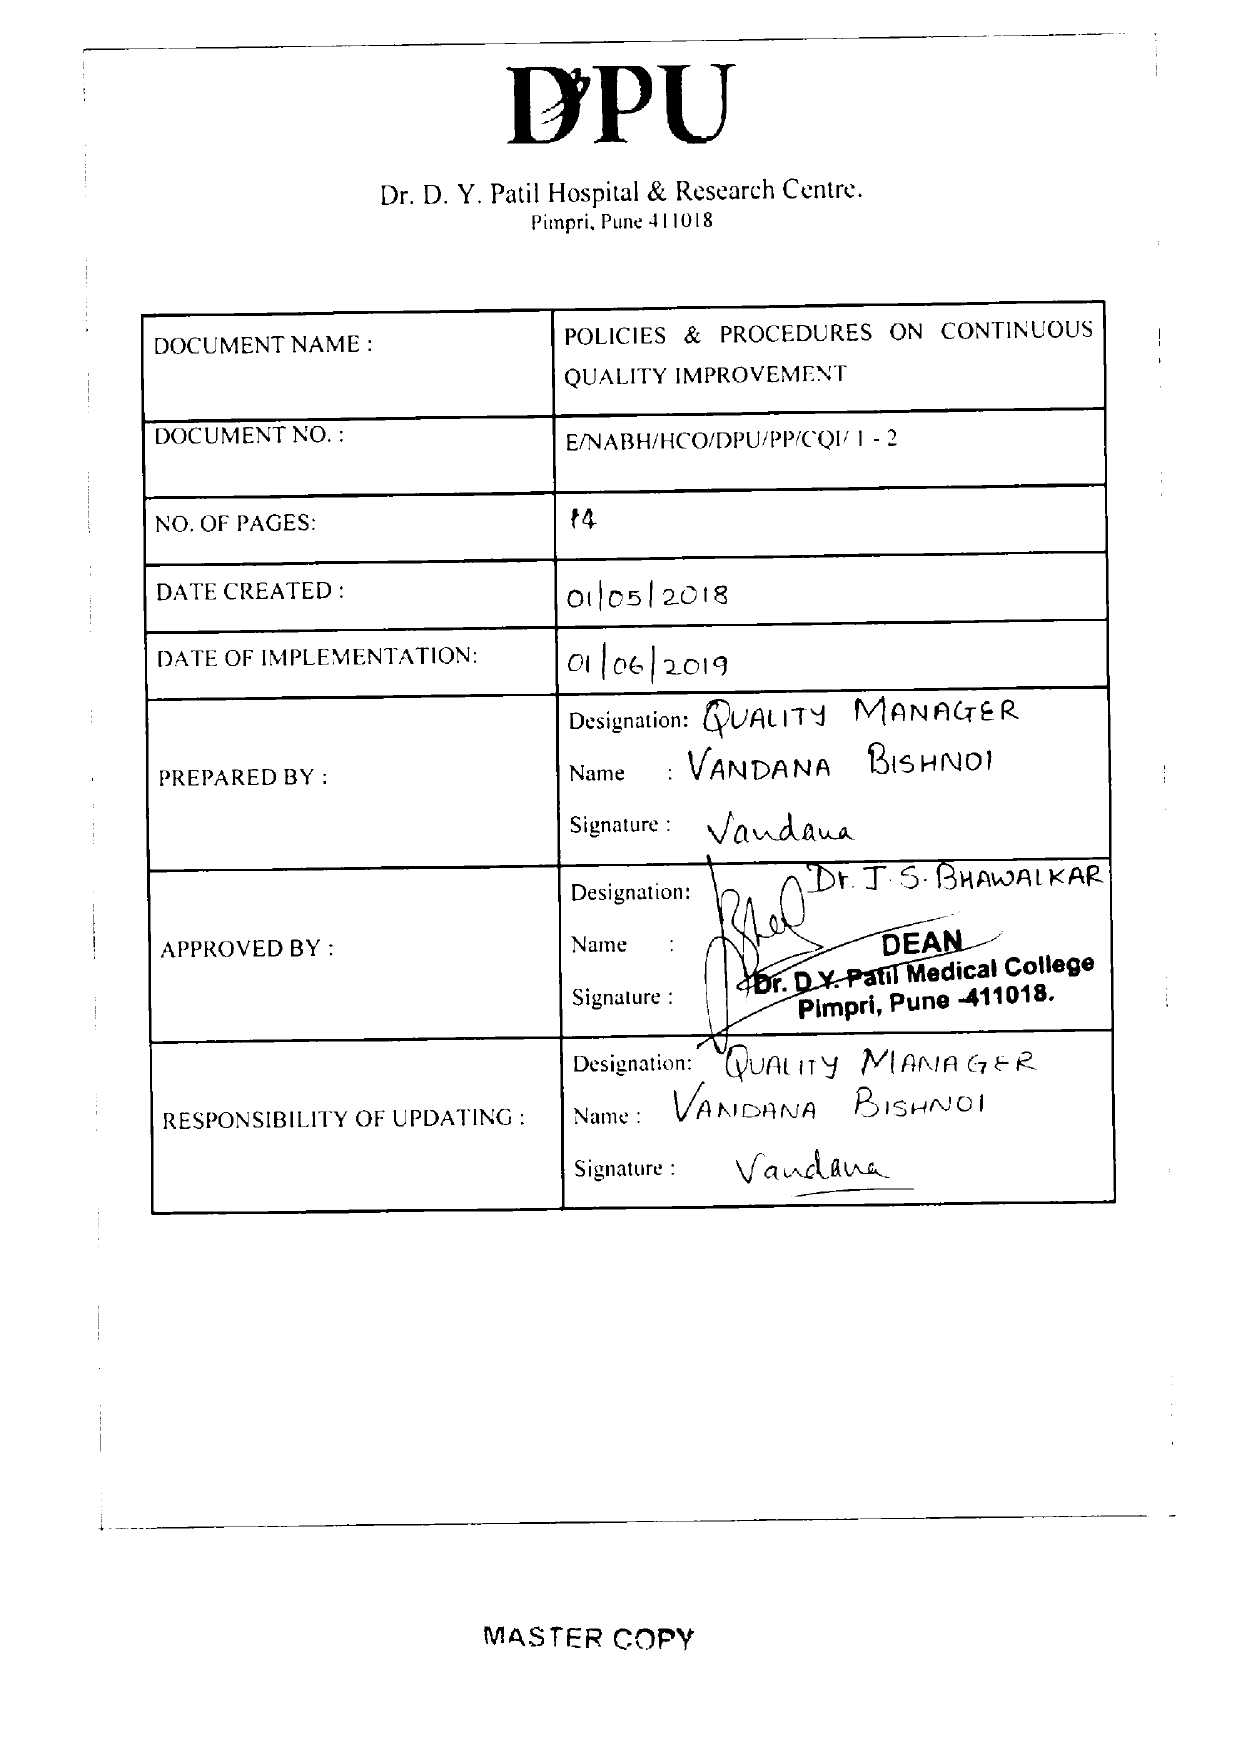 DPU
Dr. D. Y. Patil Hospital & Research Centre.
Pimpri, Pune 411018
DOCUMENT NAME :
POLICIES & PROCEDURES ON CONTINUOUS
QUALITY IMPROVEMENT
DOCUMENT NO. :
E/NABH/HCO/DPU/PP/CQI/ 1 - 2
NO. OF PAGES:
14
DATE CREATED :
01/05/2018
DATE OF IMPLEMENTATION:
01/06/2019
PREPARED BY :
Designation: QUALITY MANAGER
Name : VANDANA BISHNOI
Signature : Vandana
APPROVED BY :
Designation:
Dr. J. S. BHAWALKAR
Name :
DEAN
Dr. D.Y. Patil Medical College
Signature :
Pimpri, Pune -411018.
RESPONSIBILITY OF UPDATING :
Designation: QUALITY MANAGER
Name : VANDANA BISHNOI
Signature : Vandana
MASTER COPY